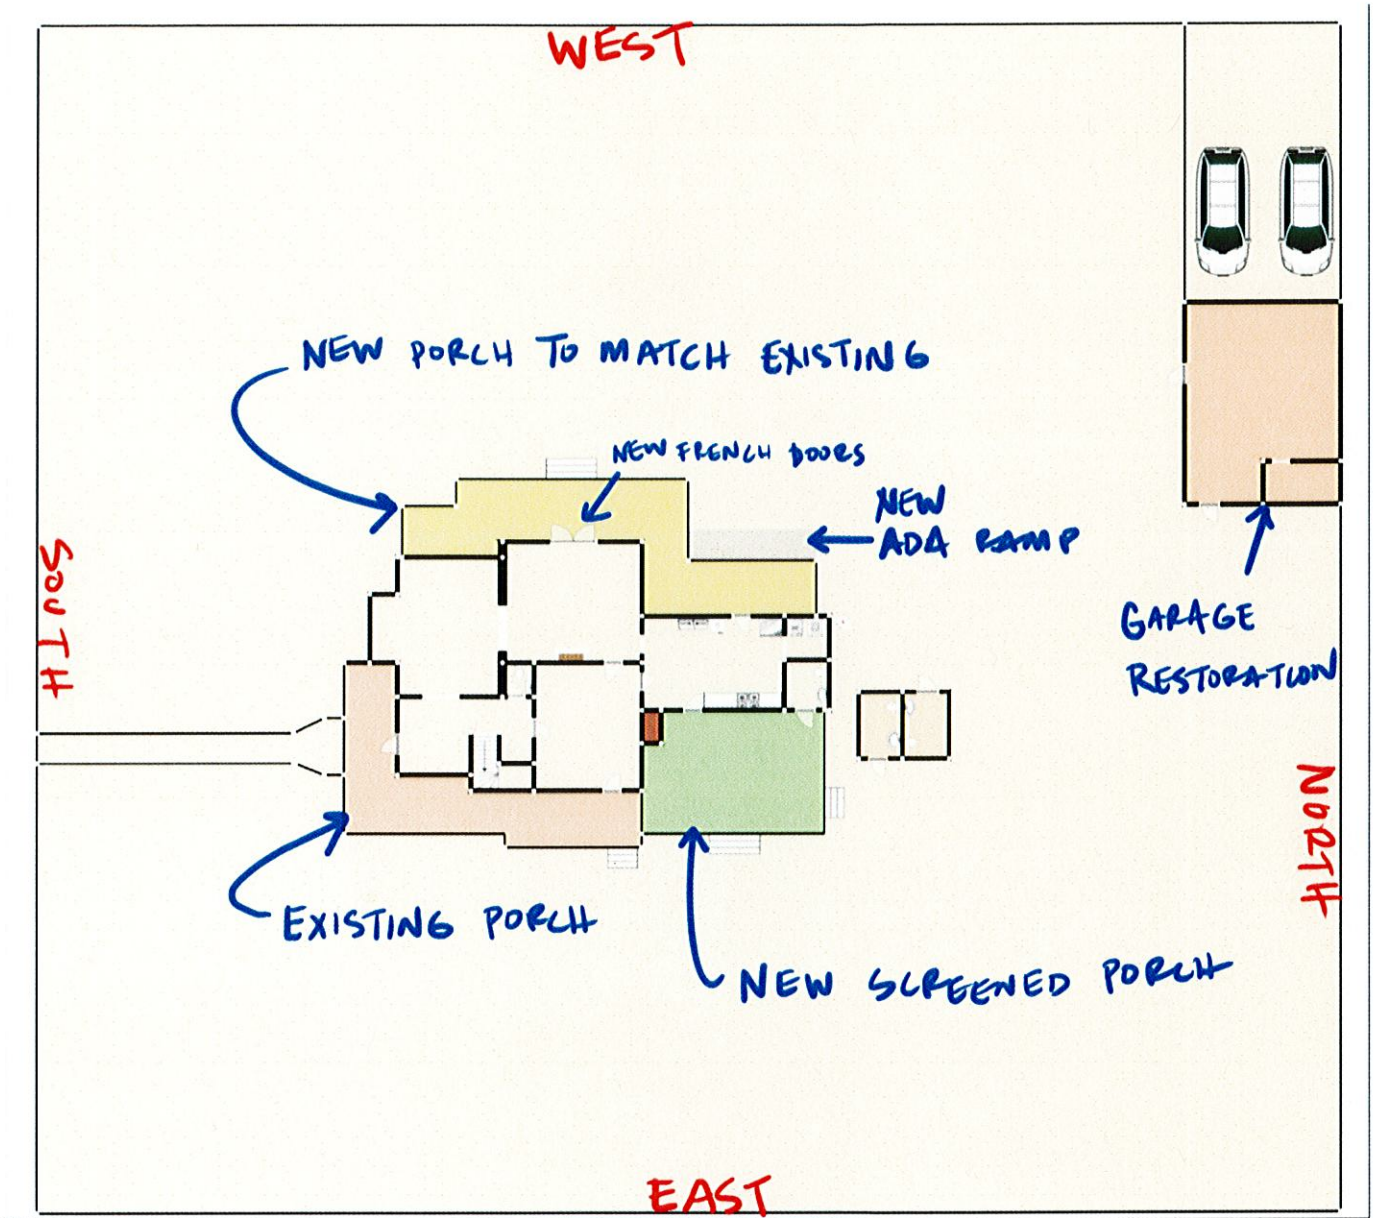 WEST
NEW PORCH TO MATCH EXISTING
NEW FRENCH DOORS
NEW
ADA RAMP
SOUTH
GARAGE
RESTORATION
NORTH
EXISTING PORCH
NEW SCREENED PORCH
EAST